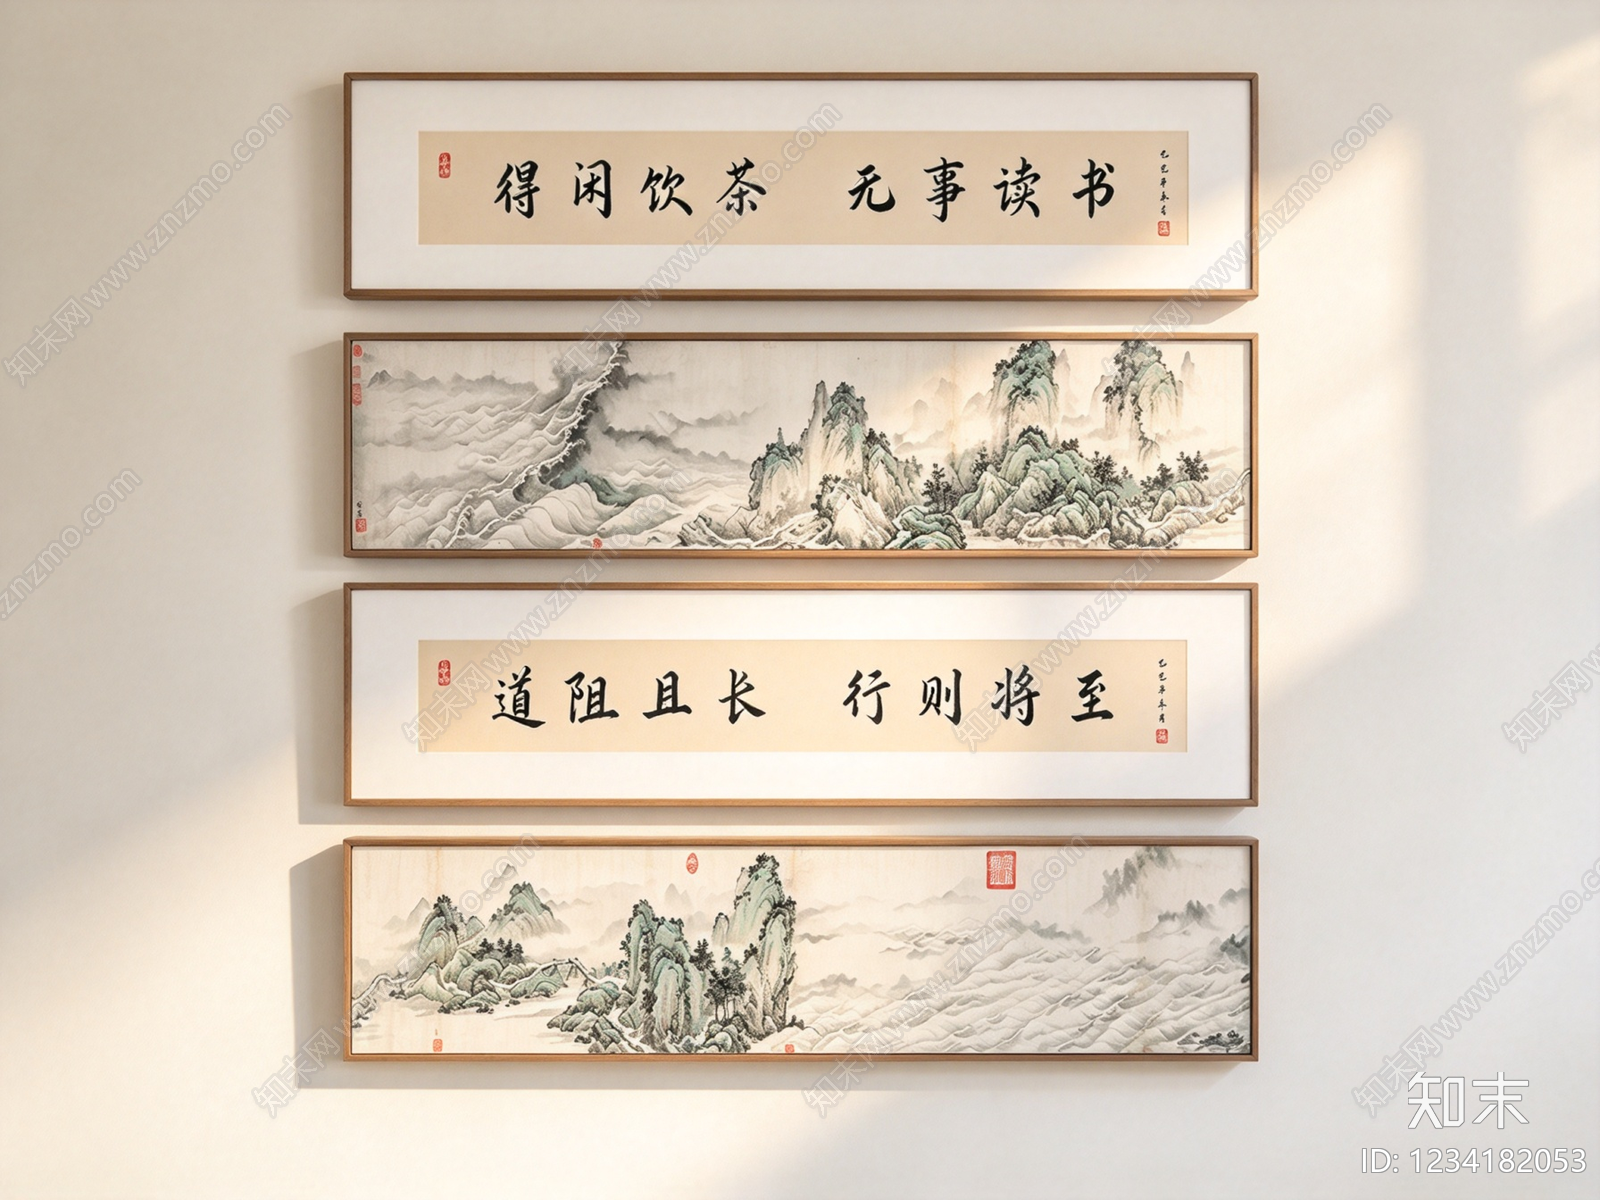 得闲饮茶 无事读书
道阻且长 行则将至
知末网www.znzmo.com
知末
ID: 1234182053